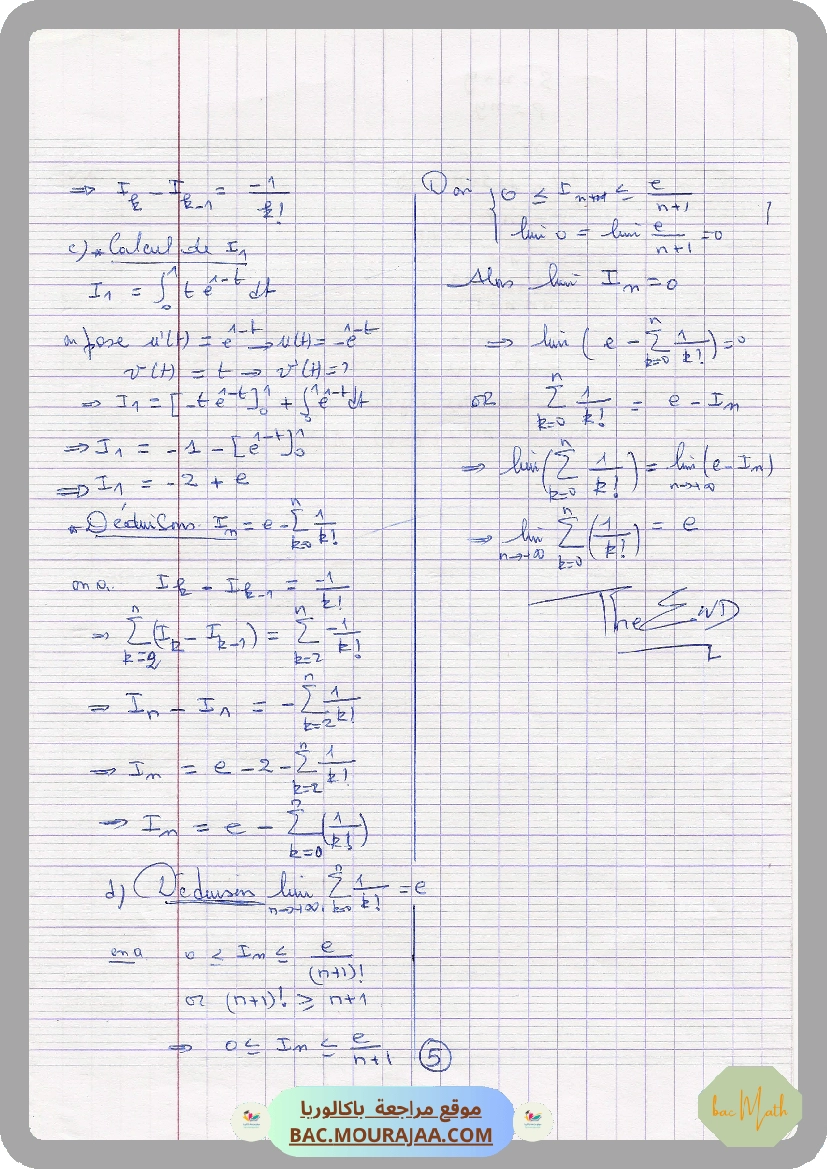 ⇒ I_k - I_{k-1} = -1/k!
c) * Calcul de I_1
I_1 = ∫_0^1 t e^{1-t} dt
on pose u'(t) = e^{1-t} → u(t) = -e^{1-t}
v(t) = t → v'(t) = 1
⇒ I_1 = [-t e^{1-t}]_0^1 + ∫_0^1 e^{1-t} dt
⇒ I_1 = -1 - [e^{1-t}]_0^1
⇒ I_1 = -2 + e
* Déduisons I_n = e - Σ_{k=0}^n 1/k!
on a I_k - I_{k-1} = -1/k!
⇒ Σ_{k=2}^n (I_k - I_{k-1}) = Σ_{k=2}^n -1/k!
⇒ I_n - I_1 = - Σ_{k=2}^n 1/k!
⇒ I_n = e - 2 - Σ_{k=2}^n 1/k!
⇒ I_n = e - Σ_{k=0}^n (1/k!)
d) Déduisons lim_{n→+∞} Σ_{k=0}^n 1/k! = e
on a 0 ≤ I_n ≤ e/(n+1)!
or (n+1)! ≥ n+1
⇒ 0 ≤ I_n ≤ e/n+1
5
D'où { 0 ≤ ≤ e/n+1
lim 0 = lim e/n+1 = 0
Alors lim I_n = 0
⇒ lim (e - Σ_{k=0}^n 1/k!) = 0
or Σ_{k=0}^n 1/k! = e - I_n
⇒ lim (Σ_{k=0}^n 1/k!) = lim_{n→+∞} (e - I_n)
⇒ lim_{n→+∞} Σ_{k=0}^n (1/k!) = e
The END
موقع مراجعة باكالوريا
BAC.MOURAJAA.COM
bac Math